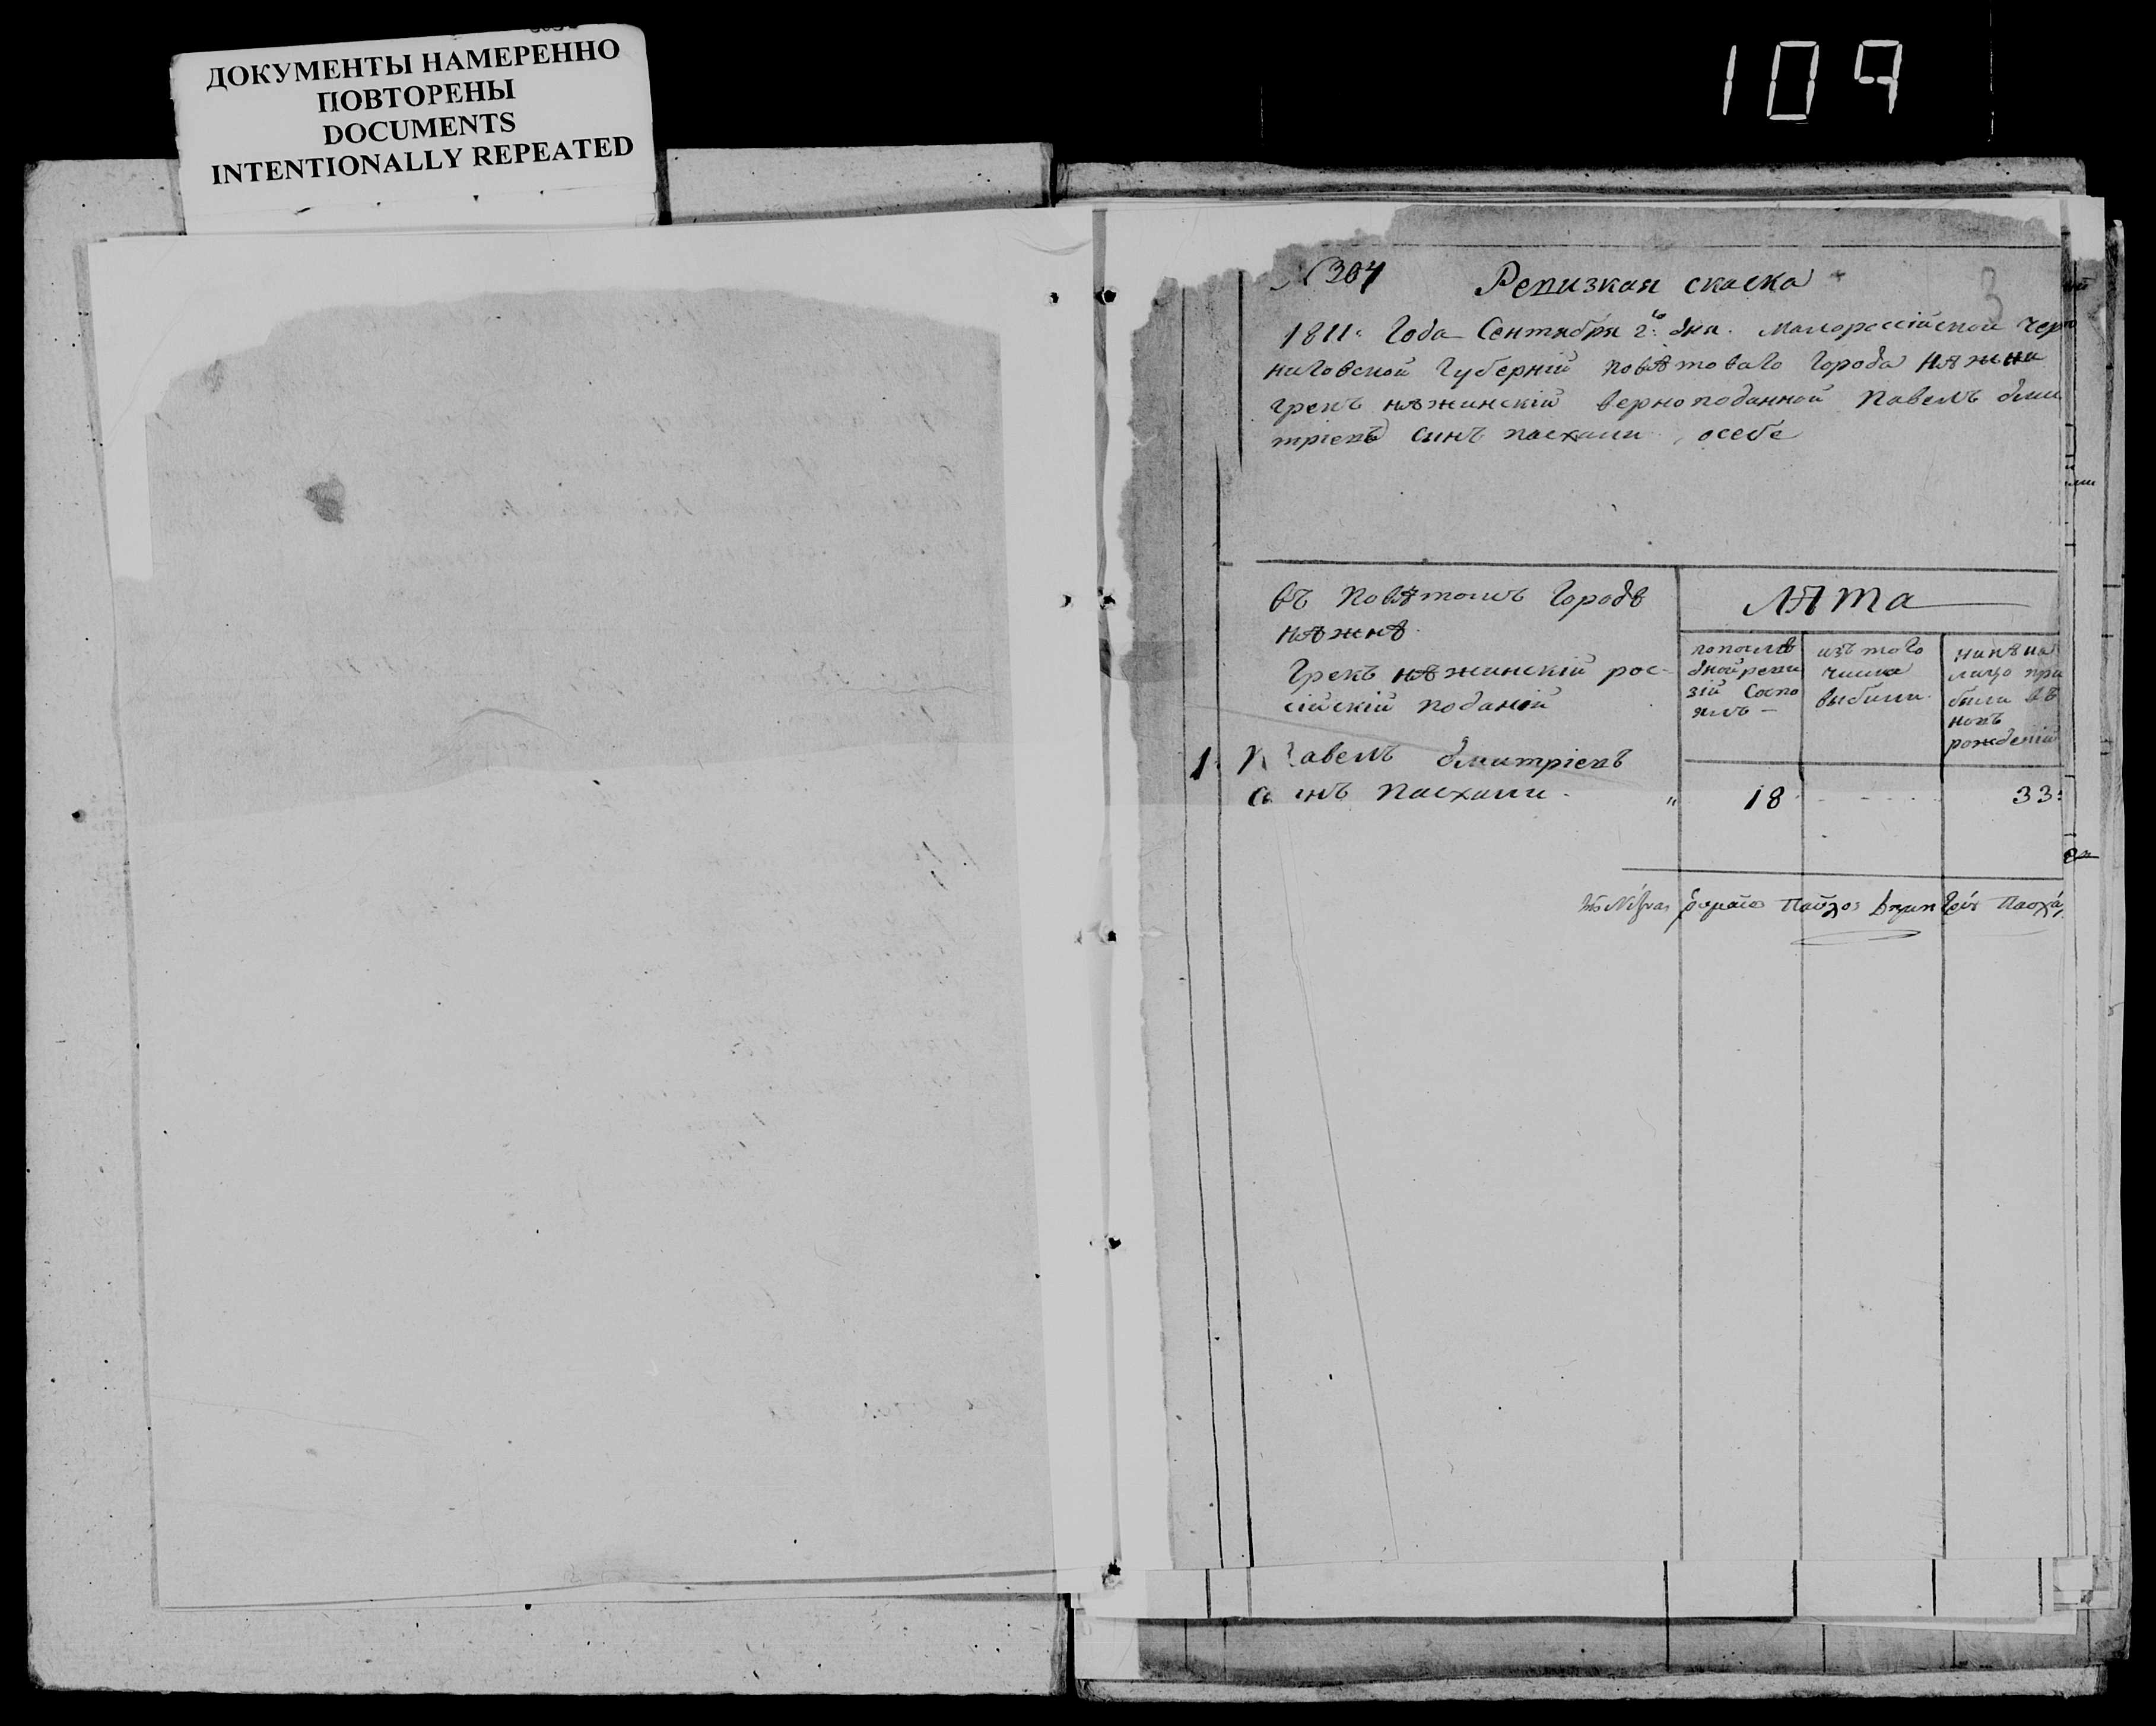 ДОКУМЕНТЫ НАМЕРЕННО
ПОВТОРЕНЫ
DOCUMENTS
INTENTIONALLY REPEATED
109
304
Ревизкая скаска
3
1811: Года Сентября 2:го дня. Малороссійской Чер
ниговской Губерній повѣтоваго Города Нѣжина
грекъ нѣжинскій верноподанной Павелъ дми
тріевъ синъ пасхали осебе
въ Повѣтомъ Городѣ
нѣжнѣ.
Грекъ нѣжинскій рос-
сійскій поданой
1. Павелъ дмитріевъ
синъ Пасхали.
Лѣта
попослѣ
дной реви
зій Состо
ялъ
изъ того
числа
выбили.
нинѣ на
лицо при
были въ
новъ
рожденій
18
33:
Παῦλος Δημητρίου Πασχά